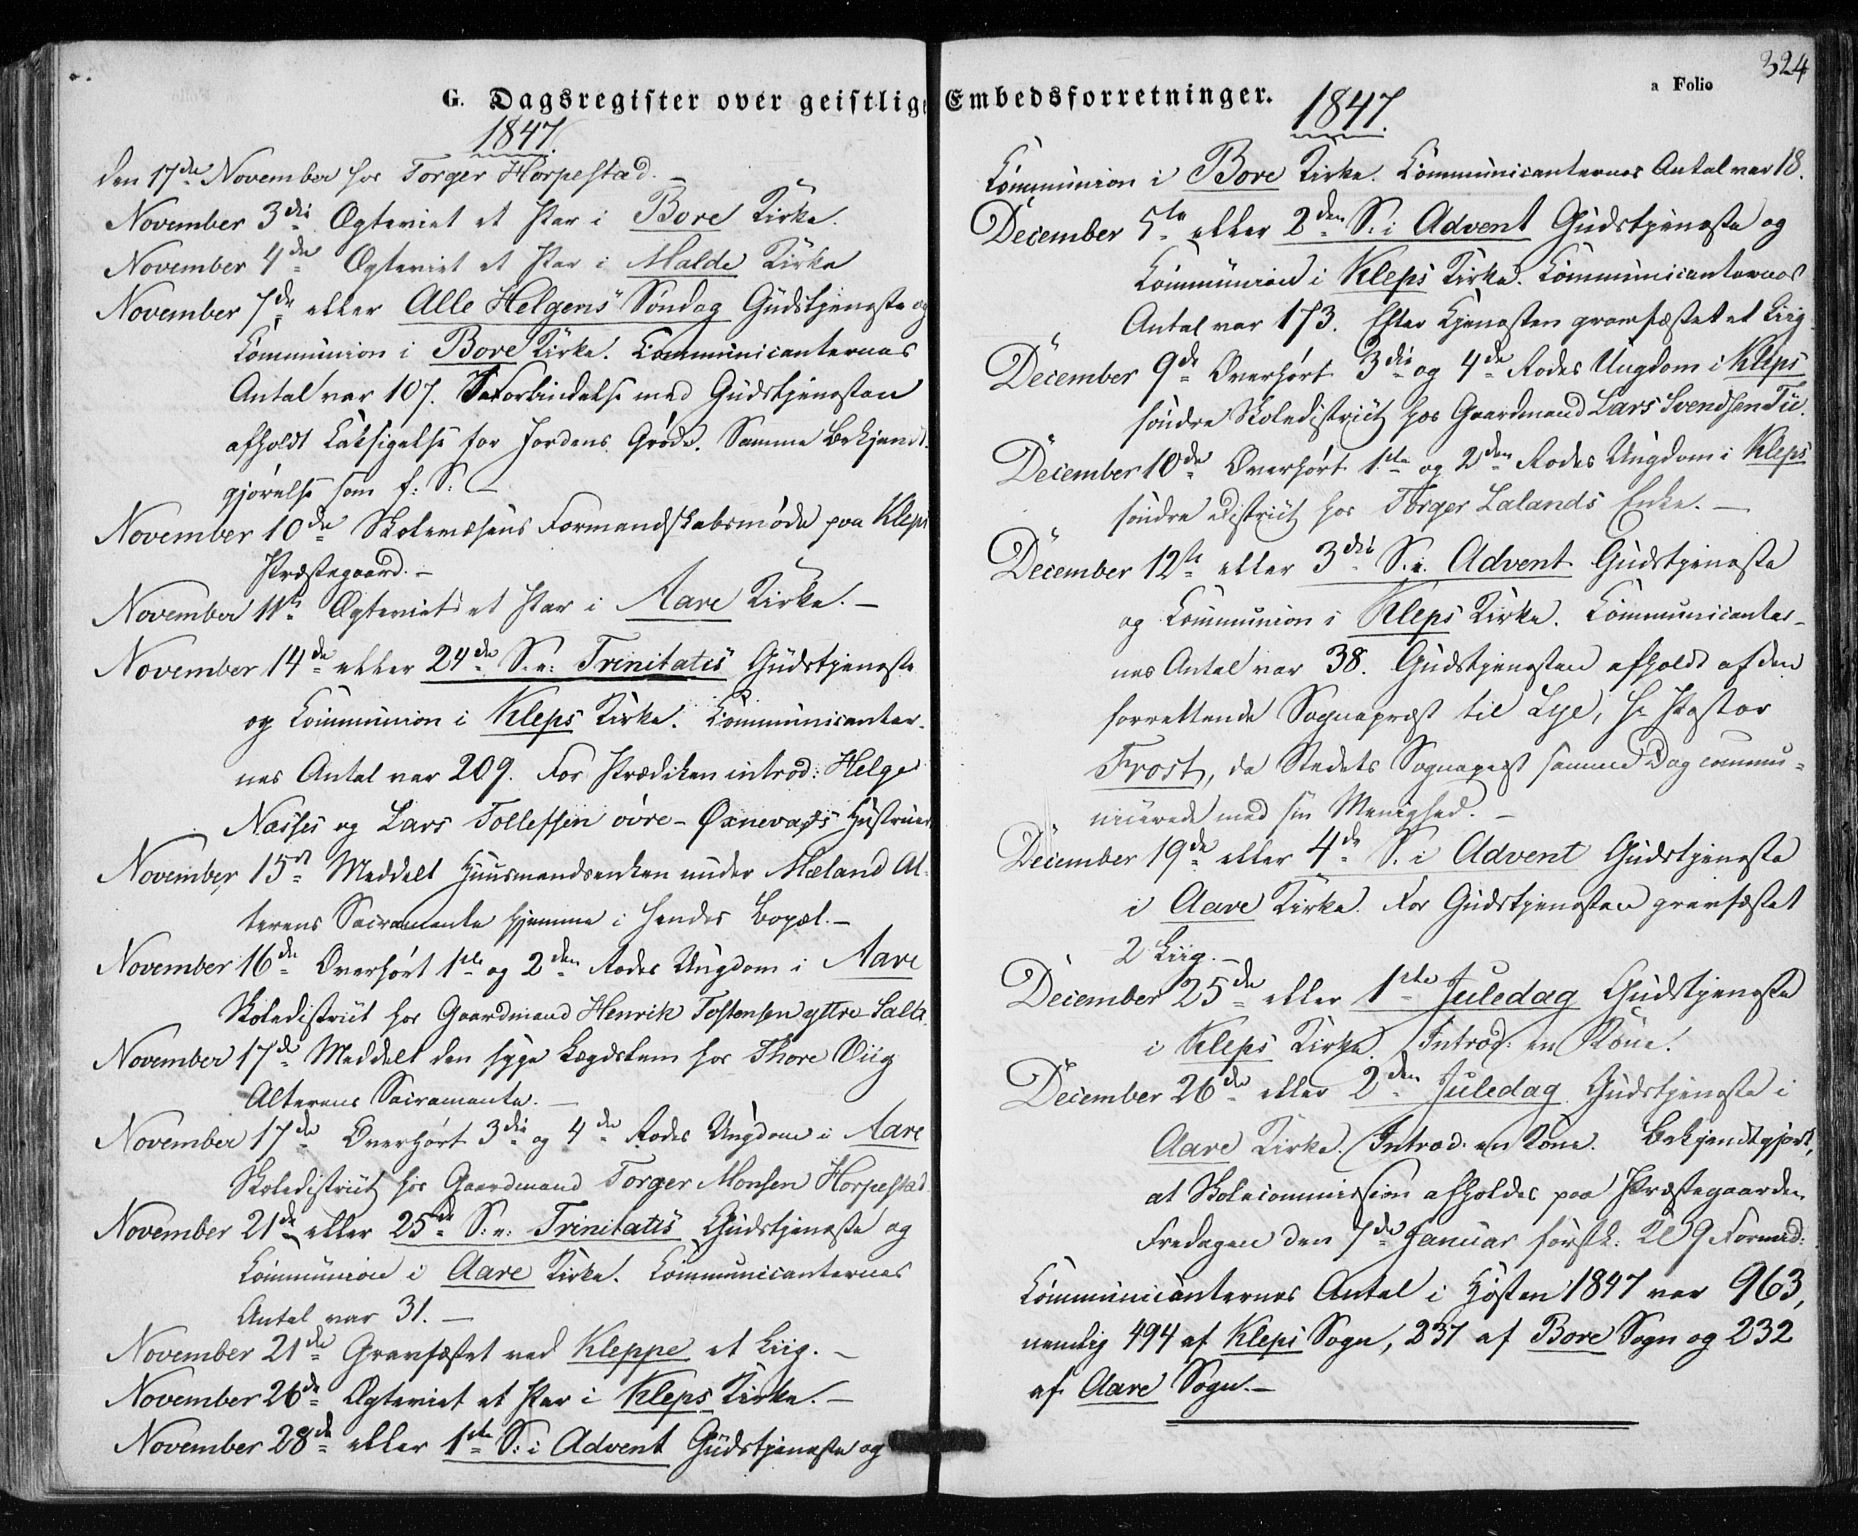 G. Dagsregister over geistlige Embedsforretninger.
a Folio
324
1847.
den 17de November hos Torger Horpestad.
November 3die Ægteviet et Par i Bore Kirke.
November 4de Ægteviet et Par i Malde Kirke
November 7de eller Alle Helgens Søndag Gudstjeneste og
Communion i Bore Kirke. Communicanternes
Antal var 107. I Forbindelse med Gudstjenesten
afholdt Taksigelse for Jordens Grøde. Samme Bekjendt-
gjørelse som f: S:
November 10de Skolevæsens Formandskabsmøde paa Kleps
Præstegaard. -
November 11te Ægteviet et Par i Aare Kirke. -
November 14de eller 24de S. e: Trinitatis Gudstjeneste
og Communion i Kleps Kirke. Communicanter-
nes Antal var 209. For Prædiken introd: Helge
Næsses og Lars Tollefsen övre-Øxnevads Hustruer
November 15de Meddelt Huusmandsenken under Mæland Al-
terens Sacramente hjemme i hendes Bopæl. -
November 16de Overhørt 1ste og 2den Rodes Ungdom i Aare
Skoledistrict hos Gaardmand Henrik Tostensen yttre Salte.
November 17de Meddelt den syge Lægdslem hos Thore Viig
Alterens Sacramente. -
November 17de Overhørt 3die og 4de Rodes Ungdom i Aare
Skoledistrict hos Gaardmand Torger Monsen Horpestad
November 21de eller 25de S. e: Trinitatis Gudstjeneste og
Communion i Aare Kirke. Communicanternes
Antal var 31. -
November 21de Gravfæstet ved Kleppe et Liig. -
November 26de Ægteviet et Par i Kleps Kirke. -
November 28de eller 1ste S. i Advent Gudstjeneste og
1847.
Communion i Bore Kirke. Communicanternes Antal var 18.
December 5te eller 2den S. i Advent Gudstjeneste og
Communion i Kleps Kirke. Communicanternes
Antal var 173. Efter Tjenesten gravfæstet et Liig.
December 9de Overhørt 3die og 4de Rodes Ungdom i Kleps
søndre Skoledistrict hos Gaardmand Lars Svendsen Tu.
December 10de Overhørt 1ste og 2den Rodes Ungdom i Kleps
søndre District hos Torger Lalands Enke. -
December 12te eller 3die S. i Advent Gudstjeneste
og Communion i Kleps Kirke. Communicanter-
nes Antal var 38. Gudstjenesten afholdt af den
forrettende Sognepræst til Lye, Hr Pastor
Frost, da Stedets Sognepræst samme Dag commu-
nicerede med sin Menighed. -
December 19de eller 4de S. i Advent Gudstjeneste
i Aare Kirke. For Gudstjenesten gravfæstet
2 Liig. -
December 25de eller 1ste Juledag Gudstjeneste
i Kleps Kirke. Introd: en Kone.
December 26de eller 2den Juledag Gudstjeneste i
Aare Kirke. Introd. en Kone. Bekjendtgjort,
at Skolecommission afholdes paa Præstegaarden
Fredagen den 7de Januar førstk. Kl 9 Formd:
Communicanternes Antal i Høsten 1847 var 963,
nemlig 494 af Kleps Sogn, 237 af Bore Sogn og 232
af Aare Sogn. -